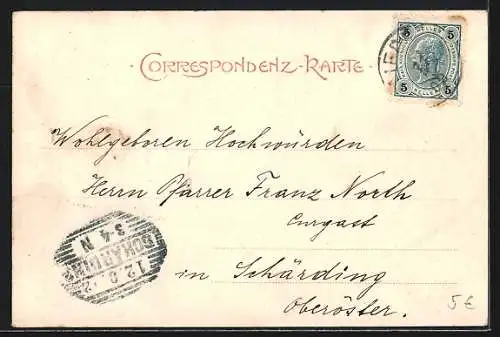 CORRESPONDENZ-KARTE
5 HELLER 5
5 HELLER 5
Wohlgeboren Hochwürden
Herrn Pfarrer Franz North
Curgast
in Schärding
Oberöster.
SCHÄRDING
12 8 2
3-4 N
5€